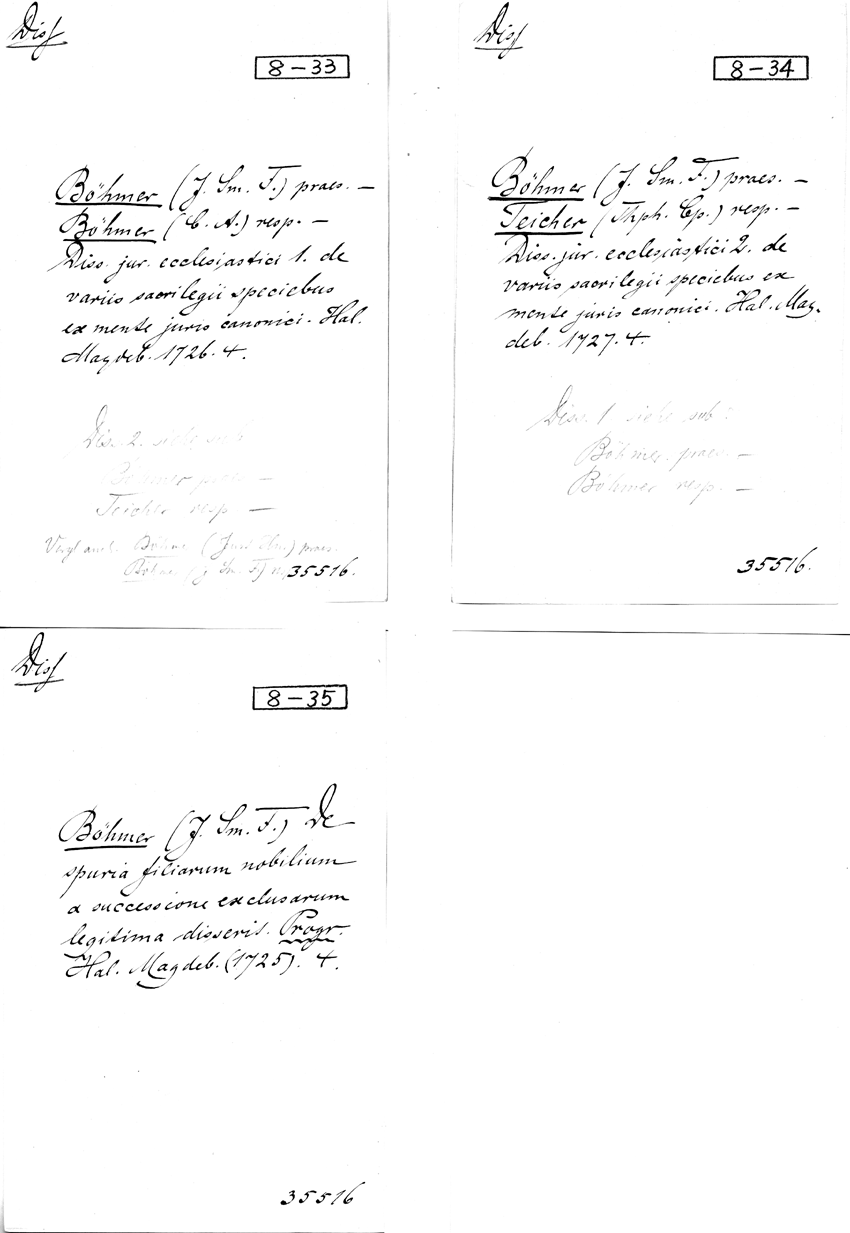 Diss
8-33
Böhmer (J. Sm. F.) praes. —
Böhmer (C. A.) resp. —
Diss. jur. ecclesiastici 1. de
variis sacrilegii speciebus
ex mente juris canonici. Hal.
Magdeb. 1726. 4.
Diss. 2. siehe sub
Böhmer praes —
Teicher resp —
Vergl auch Böhme (Just Hen.) praes.
Böhmer (J. Sm. F.) 
35516.
Diss
8-34
Böhmer (J. Sm. F.) praes. —
Teicher (Thph. Cp.) resp. —
Diss. jur. ecclesiastici 2. de
variis sacrilegii speciebus ex
mente juris canonici. Hal. Mag-
deb. 1727. 4.
Diss. 1 siehe sub:
Böhmer. praes. —
Böhmer resp. —
35516.
Diss
8-35
Böhmer (J. Sm. F.) De
spuria filiarum nobilium
a successione exclusarum
legitima disserit. Progr.
Hal. Magdeb. (1725). 4.
35516